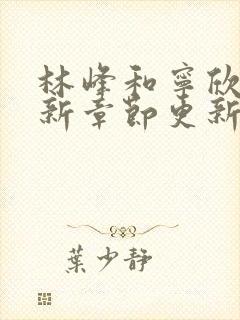 林峰和寧欣
新章節更新
葉少靜